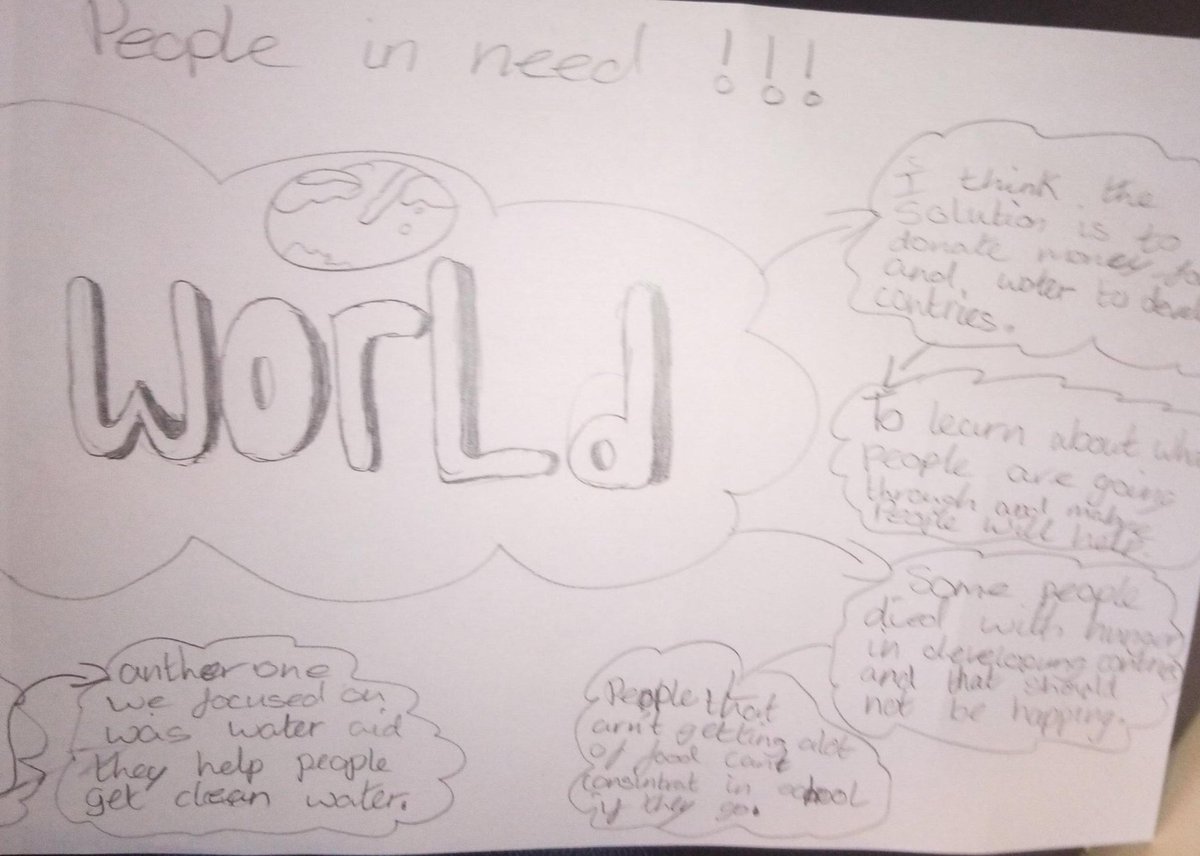 People in need !!!
WorLd
I think the
solution is to
donate money
and, water to
contries.
To learn about
people are going
through and
People will help
Some people
died with hunger
in developing contries
and that should
not be happing.
People that
arn't getting alot
of food can't
consintrat in school
if they go.
anther one
we focused on
was water aid
they help people
get clean water.